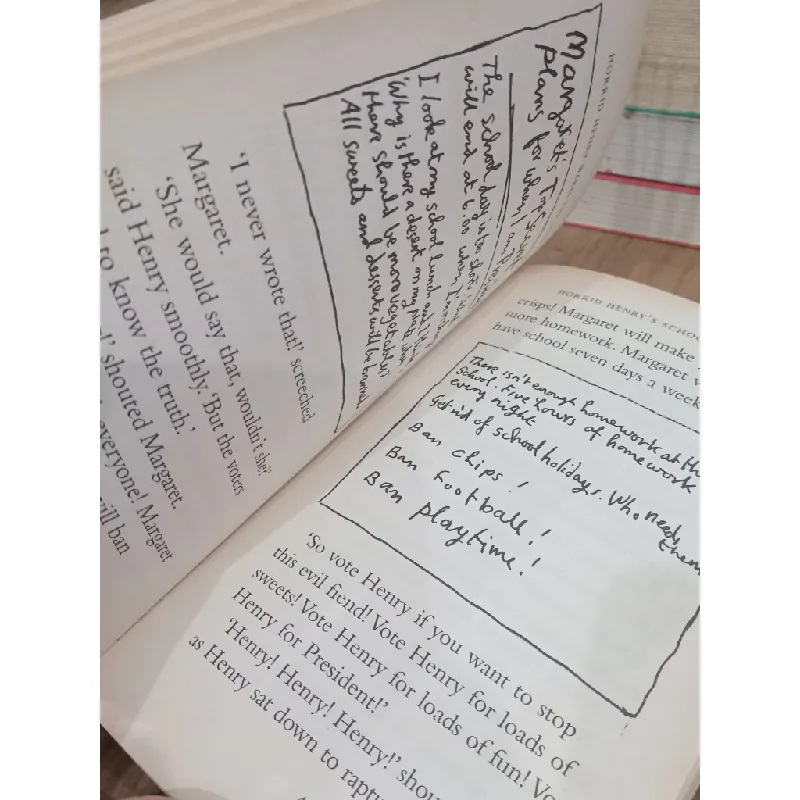 HORRID HENRY
Margaret's Top
plans for when I
The school day is too short.
will end at 6.00 when
I look at my school lunch and
'Why is there a desert on my plate when
there should be more vegetables?'
All sweets and desserts will be banned.
'I never wrote that!' screeched
Margaret.
'She would say that, wouldn't she?'
said Henry smoothly. 'But the voters
to know the truth.'
shouted Margaret.
everyone! Margaret
will ban
HORRID HENRY'S SCHOO
crisps! Margaret will make
more homework. Margaret
have school seven days a week
There isn't enough homework at th
school. Five hours of homework
every night
Get rid of school holidays. Who needs
them
Ban chips!
Ban football!
Ban playtime!
'So vote Henry if you want to stop
this evil fiend! Vote Henry for loads of
sweets! Vote Henry for loads of fun! Vo
Henry for President!'
'Henry! Henry! Henry!' shou
as Henry sat down to raptu